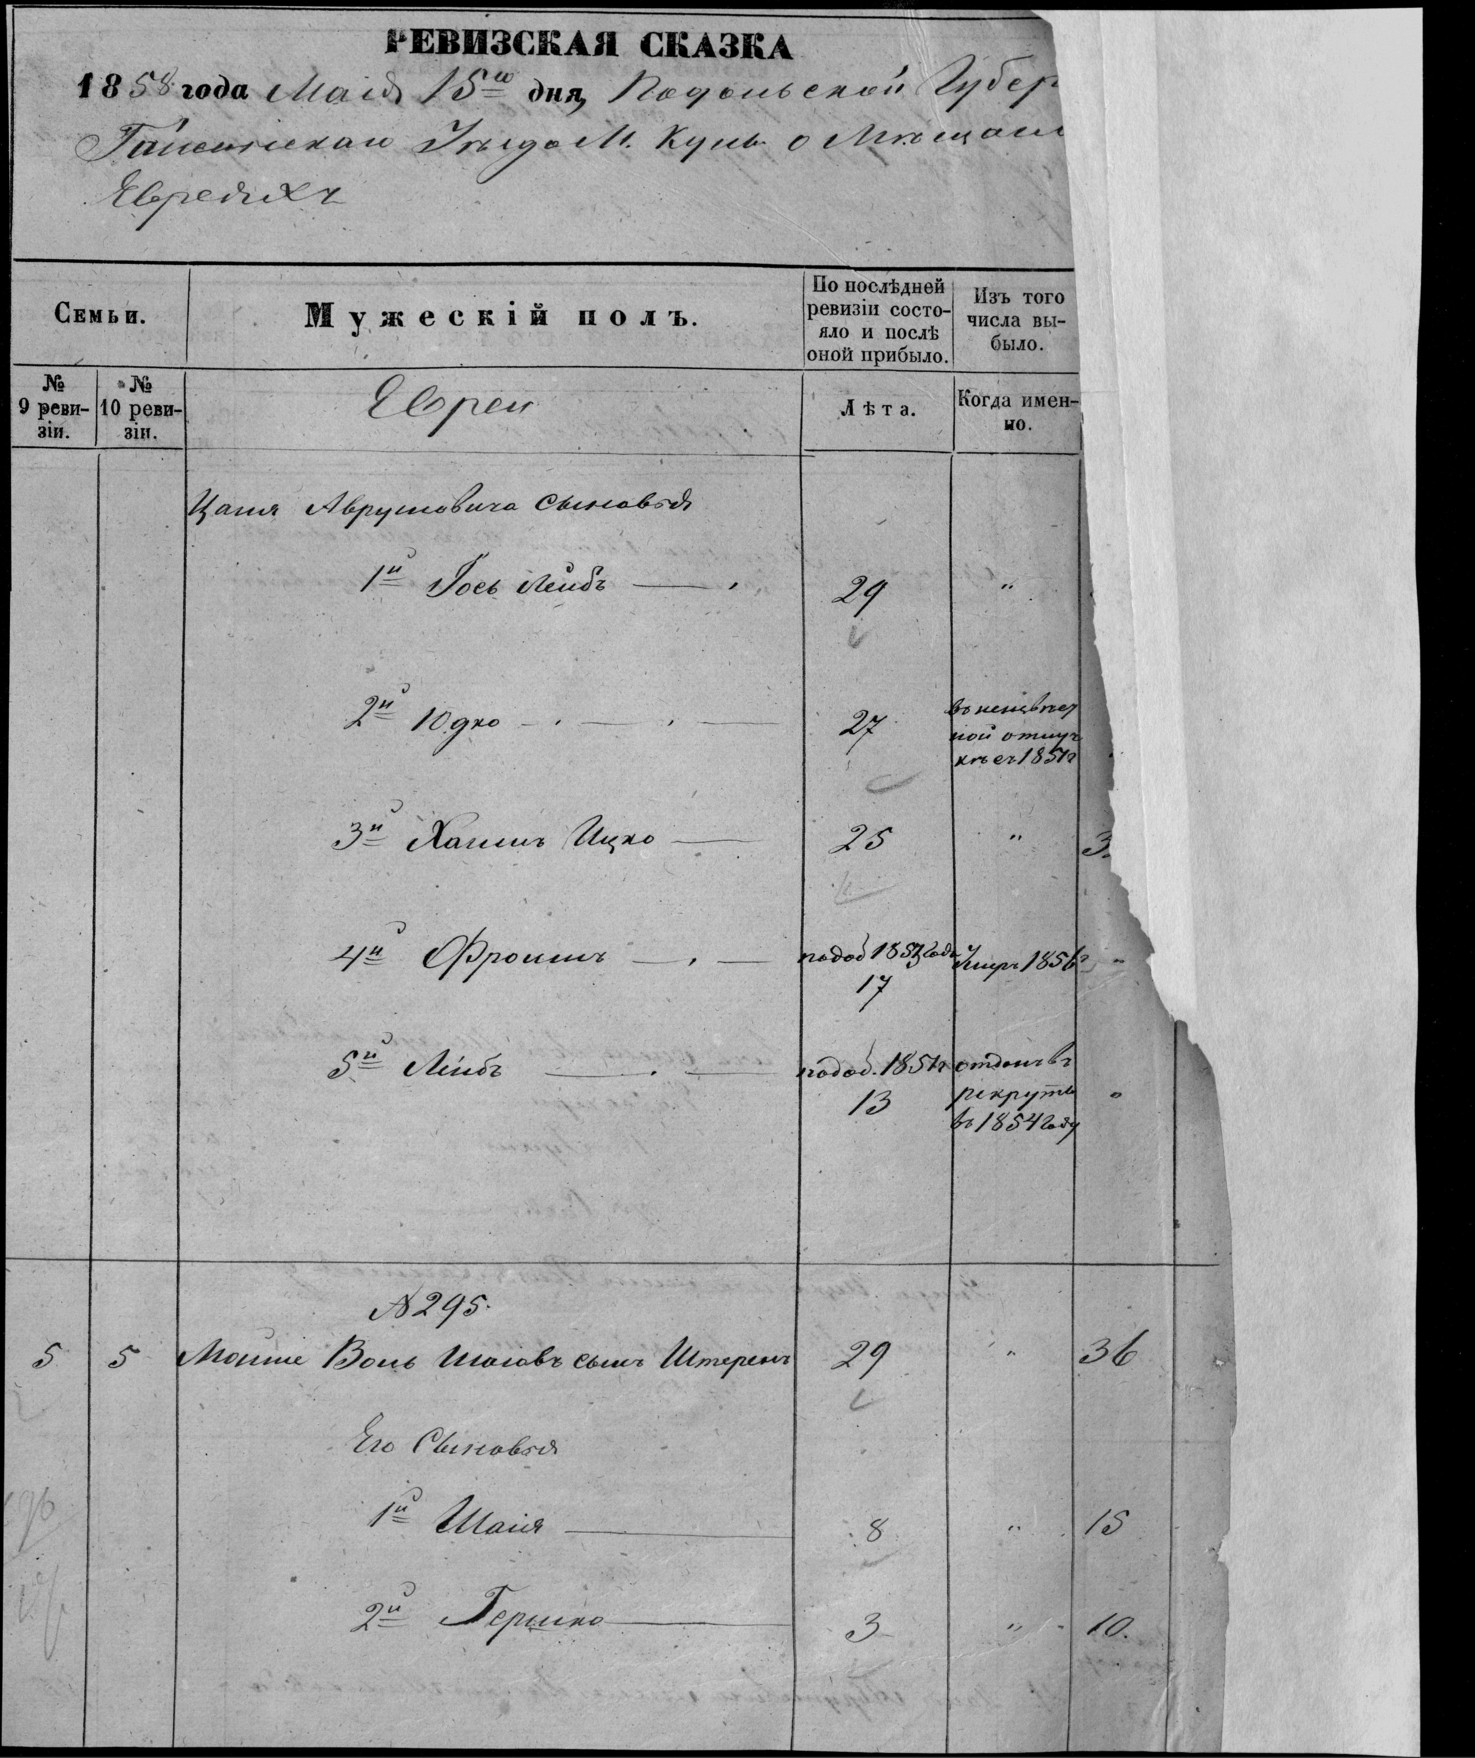 РЕВИЗСКАЯ СКАЗКА
1858 года Маія 15го дня, Подольской Губер
Гайсинскаго Уѣзда М. Куны о Мѣщан
Евреяхъ
Семьи.
Мужескій полъ.
По послѣдней ревизіи состо-
яло и послѣ
оной прибыло.
Изъ того
числа вы-
было.
№
9 реви-
зіи.
№
10 реви-
зіи.
Евреи
Лѣта.
Когда имен-
но.
Цаля Аврумовича сыновья
1й Іось Лейбъ 29 "
2й Юдко 27
въ неизвѣст
ной отлуч
кѣ съ 1851г
3й Хаимъ Ицко 25 " 3
4й Фроимъ 1857 года Умеръ 1856г "
17
5й Лейбъ 1851г отданъ въ
13 рекруты
въ 1854 году
№ 295.
5 5 Мошше Волъ Шаіовъ сынъ Штеренъ 29 " 36
Его Сыновья
1й Шаія 8 " 15
2й Гершко 3 " 10.